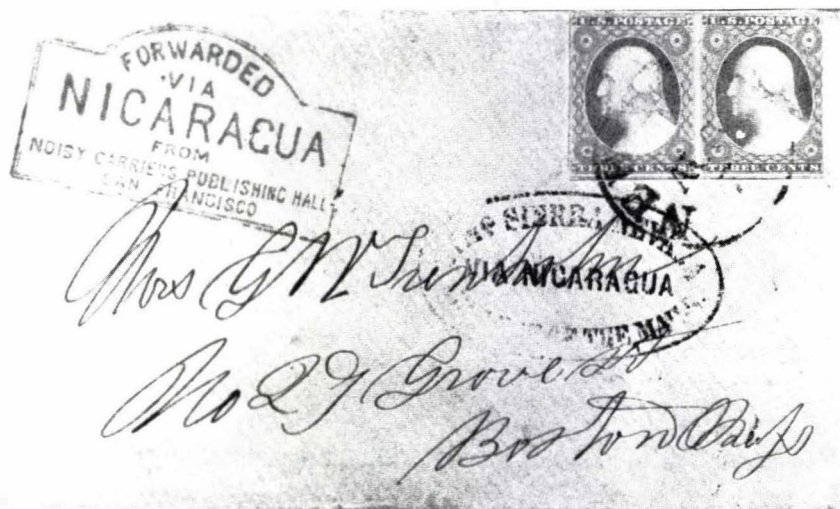 FORWARDED
VIA
NICARAGUA
FROM
NOISY CARRIERS PUBLISHING HALL
SAN FRANCISCO
U.S. POSTAGE
THREE CENTS
U.S. POSTAGE
THREE CENTS
SIERRA NEVADA
VIA NICARAGUA
OF THE MAILS
Mrs G W
No 27 Grove St
Boston